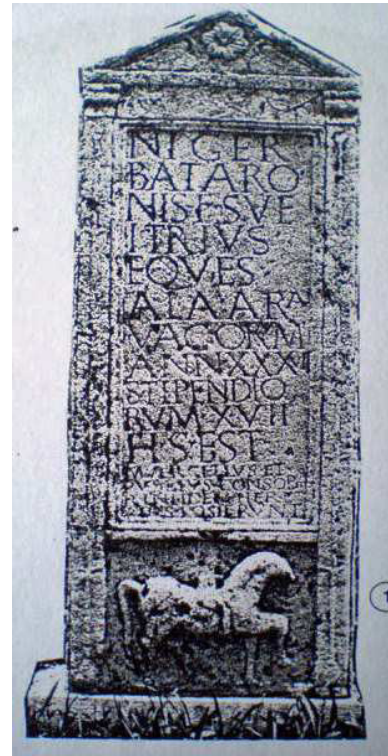 NIGER
BATARO
NIS·F·SVE
ITRIVS
EQVES·
ALA·ARA
VACORVM
ANN·XXXII
STIPENDIO
RVM·XVII
H·S·EST
ET
CONSOB
POSIERVNT
1